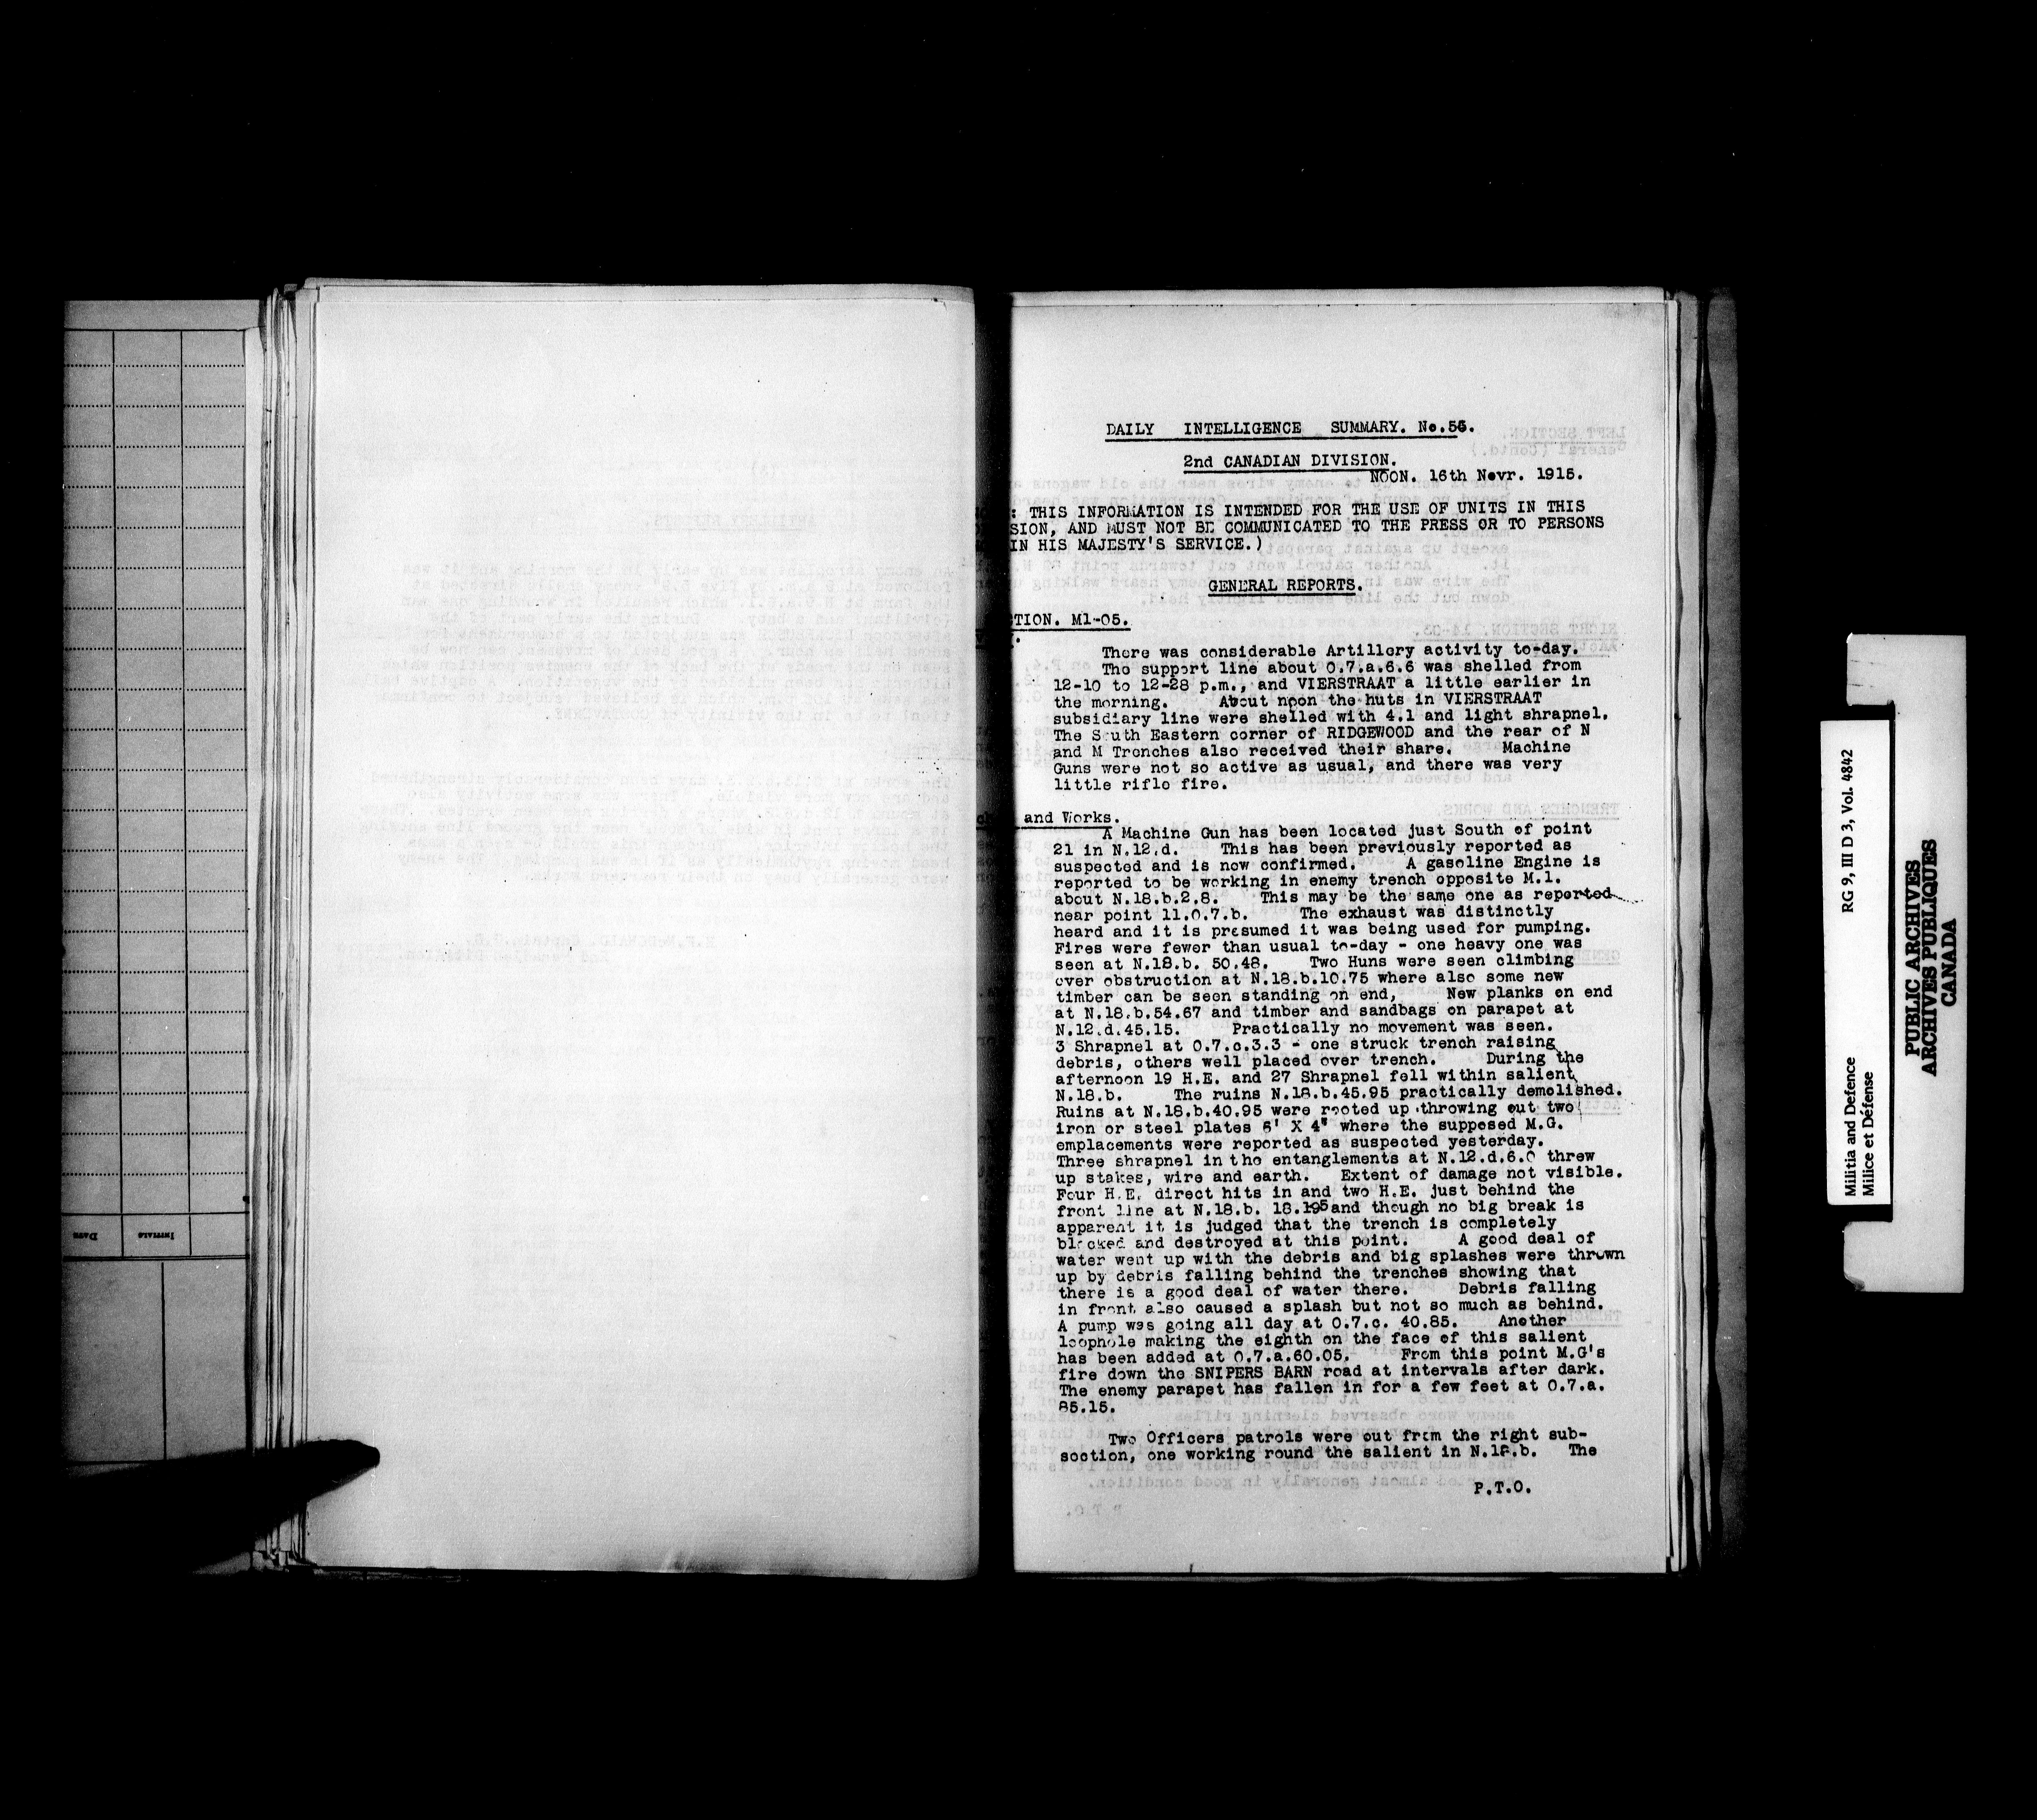 DAILY INTELLIGENCE SUMMARY. No.56.
2nd CANADIAN DIVISION.
NOON. 16th Novr. 1915.
: THIS INFORMATION IS INTENDED FOR THE USE OF UNITS IN THIS
SION, AND MUST NOT BE COMMUNICATED TO THE PRESS OR TO PERSONS
IN HIS MAJESTY'S SERVICE.)
GENERAL REPORTS.
TION. M1-O5.
There was considerable Artillery activity to-day.
The support line about O.7.a.6.6 was shelled from
12-10 to 12-28 p.m., and VIERSTRAAT a little earlier in
the morning. About noon the huts in VIERSTRAAT
subsidiary line were shelled with 4.1 and light shrapnel.
The South Eastern corner of RIDGEWOOD and the rear of N
and M Trenches also received their share. Machine
Guns were not so active as usual, and there was very
little rifle fire.
and Works.
A Machine Gun has been located just South of point
21 in N.12.d. This has been previously reported as
suspected and is now confirmed. A gasoline Engine is
reported to be working in enemy trench opposite M.1.
about N.18.b.2.8. This may be the same one as reported
near point 11.O.7.b. The exhaust was distinctly
heard and it is presumed it was being used for pumping.
Fires were fewer than usual to-day - one heavy one was
seen at N.18.b. 50.48. Two Huns were seen climbing
over obstruction at N.18.b.10.75 where also some new
timber can be seen standing on end, New planks on end
at N.18.b.54.67 and timber and sandbags on parapet at
N.12.d.45.15. Practically no movement was seen.
3 Shrapnel at O.7.c.3.3 - one struck trench raising
debris, others well placed over trench. During the
afternoon 19 H.E. and 27 Shrapnel fell within salient
N.18.b. The ruins N.18.b.45.95 practically demolished.
Ruins at N.18.b.40.95 were rooted up throwing out two
iron or steel plates 6' X 4' where the supposed M.G.
emplacements were reported as suspected yesterday.
Three shrapnel in the entanglements at N.12.d.6.0 threw
up stakes, wire and earth. Extent of damage not visible.
Four H.E. direct hits in and two H.E. just behind the
front line at N.18.b. 18.195 and though no big break is
apparent it is judged that the trench is completely
blocked and destroyed at this point. A good deal of
water went up with the debris and big splashes were thrown
up by debris falling behind the trenches showing that
there is a good deal of water there. Debris falling
in front also caused a splash but not so much as behind.
A pump was going all day at O.7.c. 40.85. Another
loophole making the eighth on the face of this salient
has been added at O.7.a.60.05. From this point M.G's
fire down the SNIPERS BARN road at intervals after dark.
The enemy parapet has fallen in for a few feet at O.7.a.
85.15.
Two Officers patrols were out from the right sub-
section, one working round the salient in N.18.b. The
P.T.O.
DATE INITIALS
Militia and Defence RG 9, III D 3, Vol. 4842
Milice et Défense
PUBLIC ARCHIVES
ARCHIVES PUBLIQUES
CANADA